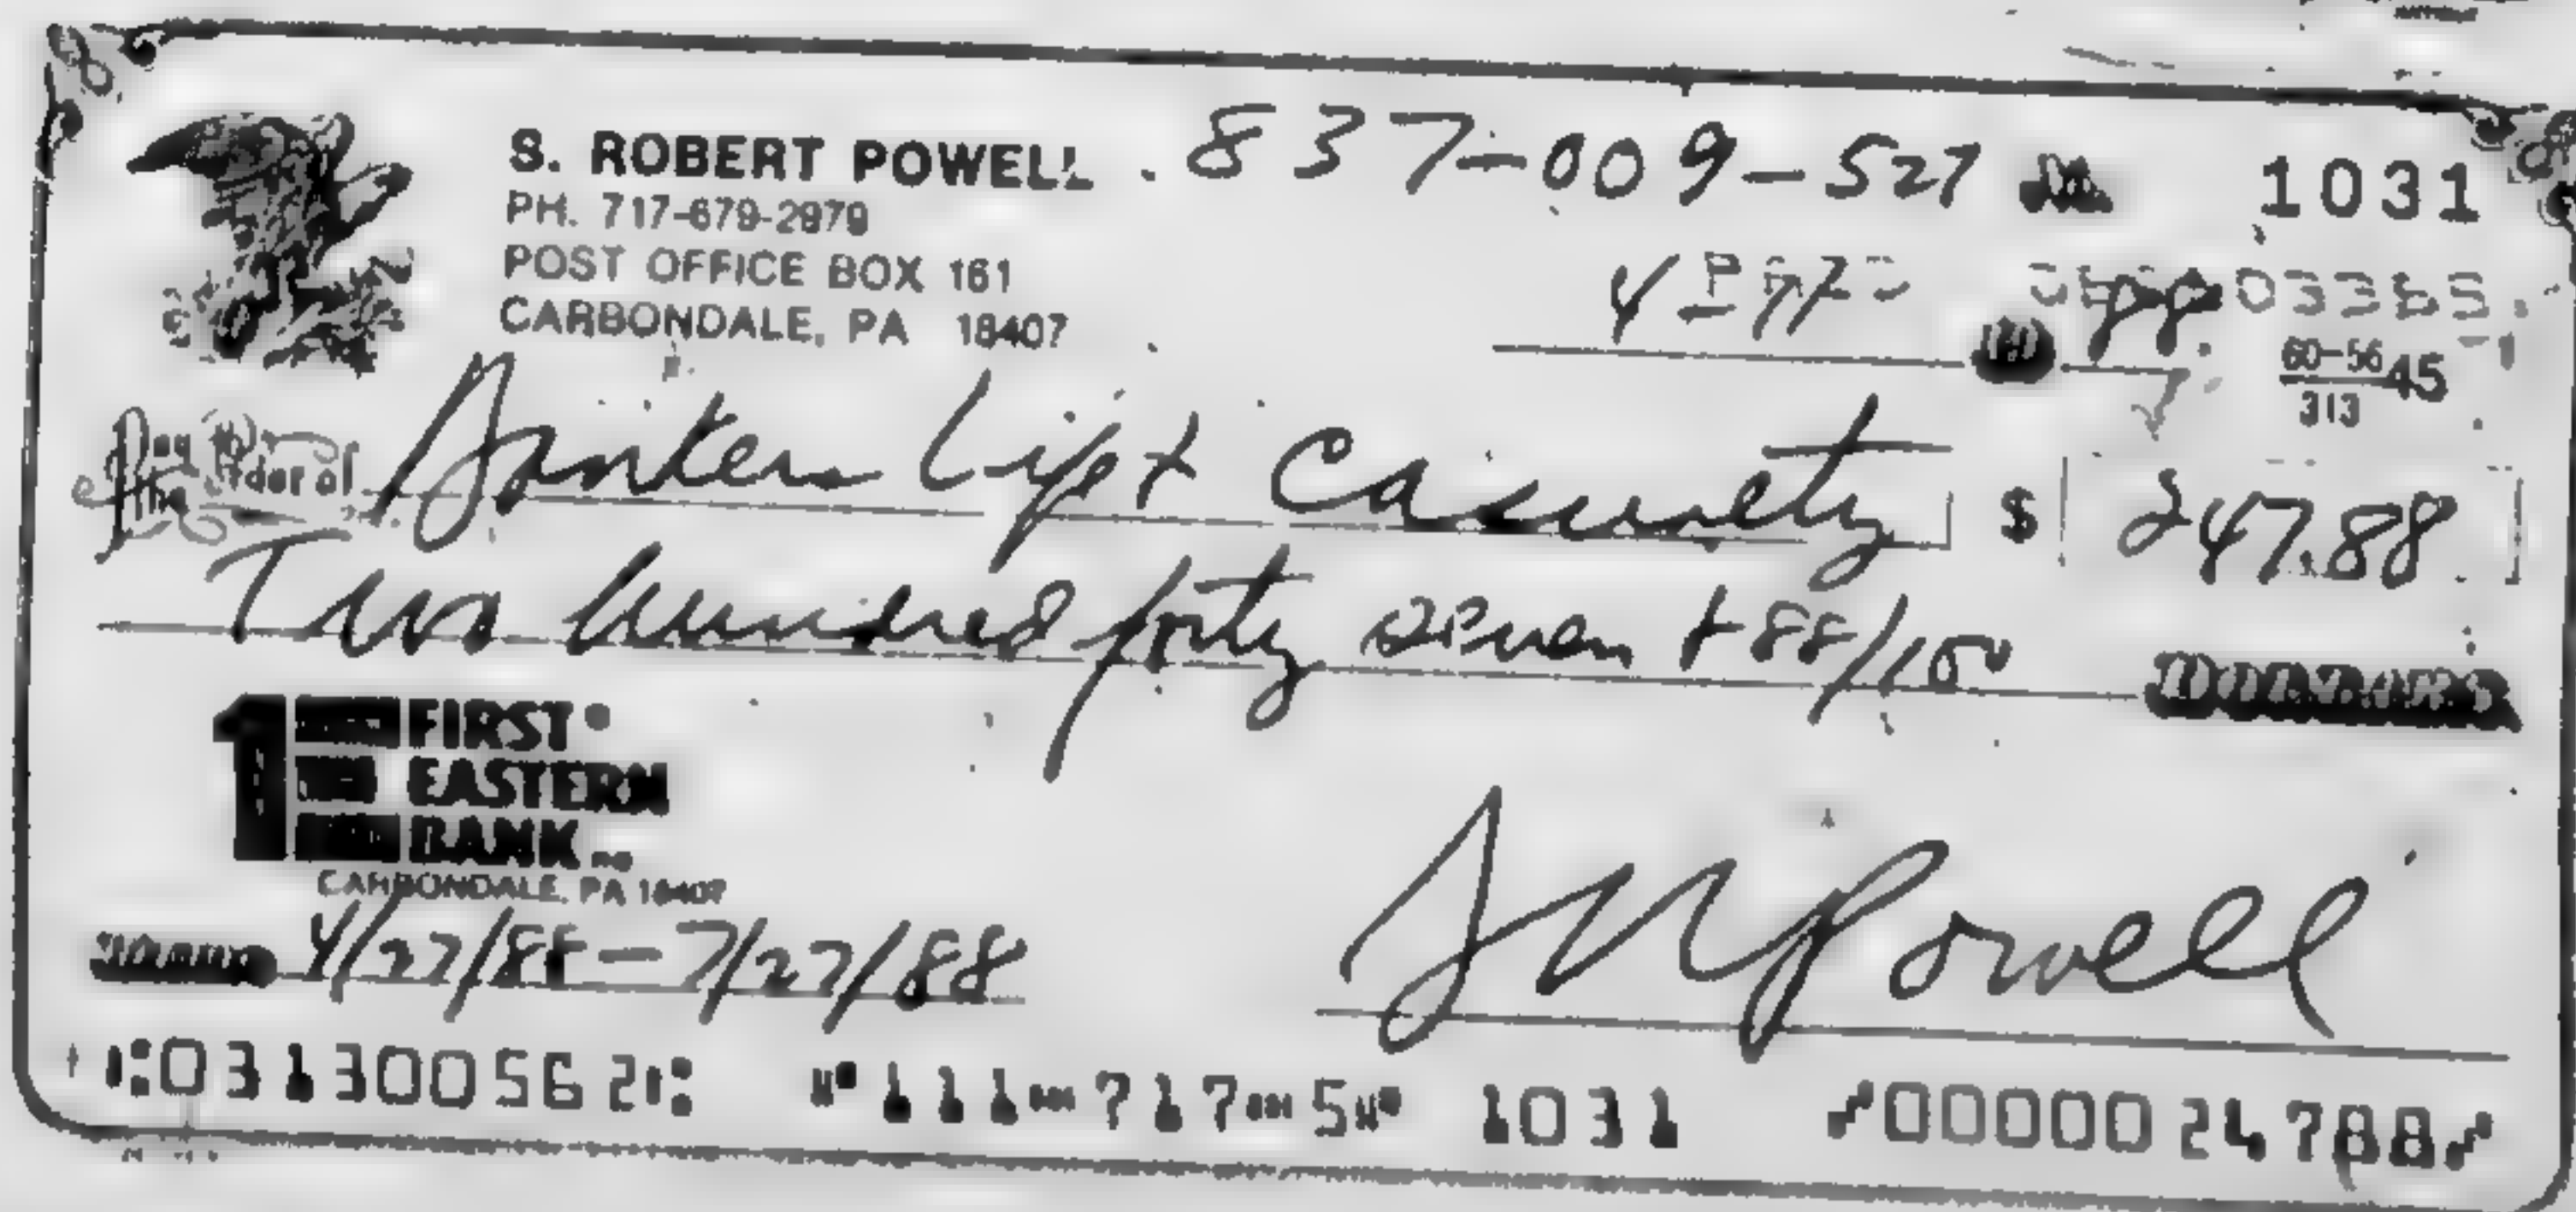 S. ROBERT POWELL 837-009-527 1031
PH. 717-679-2979
POST OFFICE BOX 161
CARBONDALE, PA 18407
88
60-56 45
313
Pay to the Order of Bankers Life & Casualty $ 247.88
Two hundred forty seven + 88/100 DOLLARS
1 FIRST
EASTERN
BANK N.A.
CARBONDALE, PA 18407
4/27/88-7/27/88 S R Powell
⑆031300562⑆ ⑈111⑉717⑉5⑈ 1031 ⑇0000024788⑇